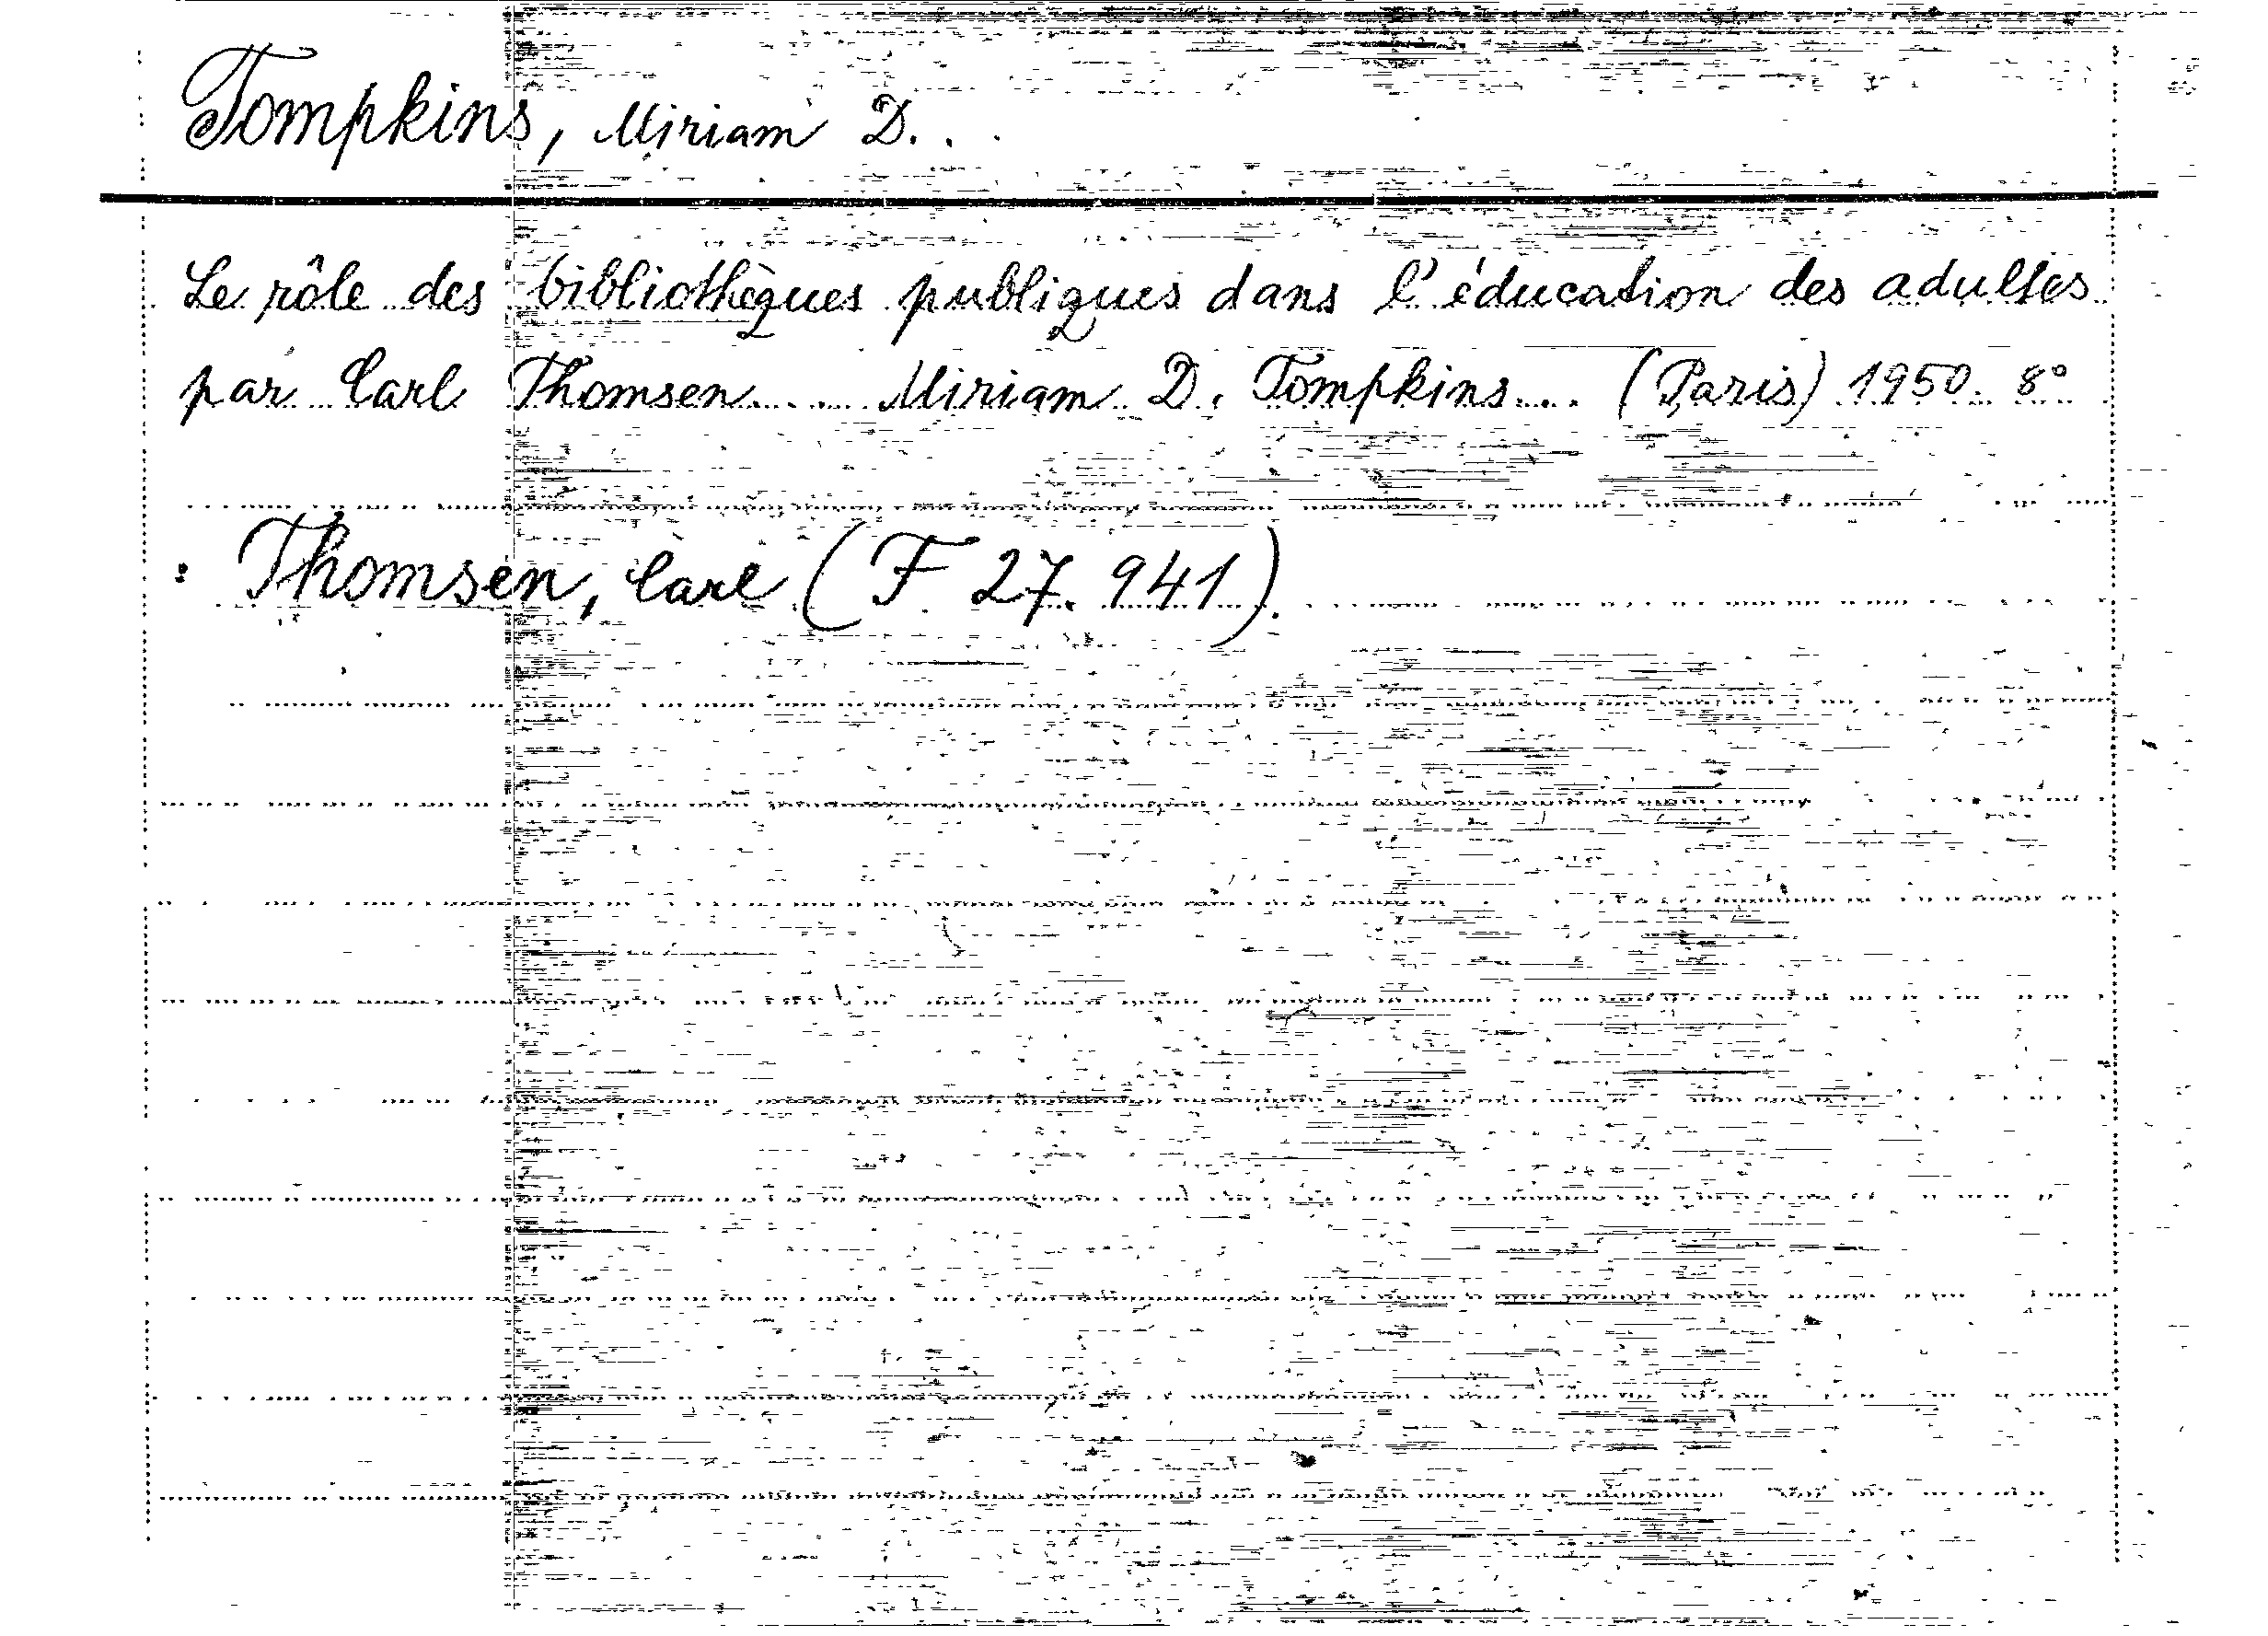 Tompkins, Miriam D..
Le rôle des bibliothèques publiques dans l'éducation des adultes
par Carl Thomsen.... Miriam D. Tompkins... (Paris) 1950. 8°
: Thomsen, Carl (F 27.941).